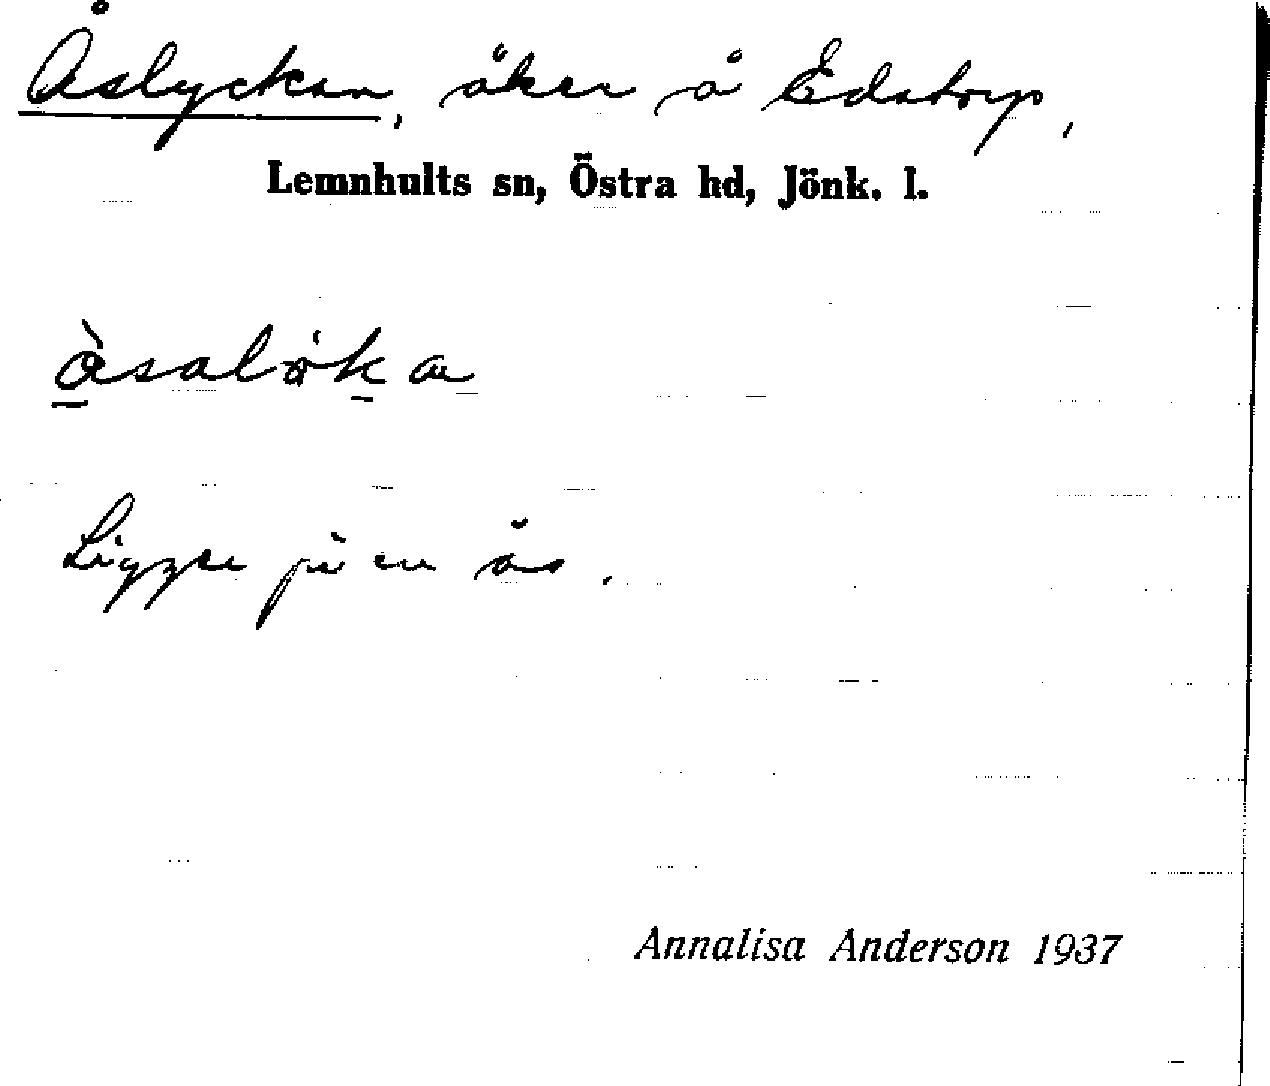 Åslyckan, åker å Edstorp,
Lemnhults sn, Östra hd, Jönk. l.
Ligger på en ås.
Annalisa Anderson 1937